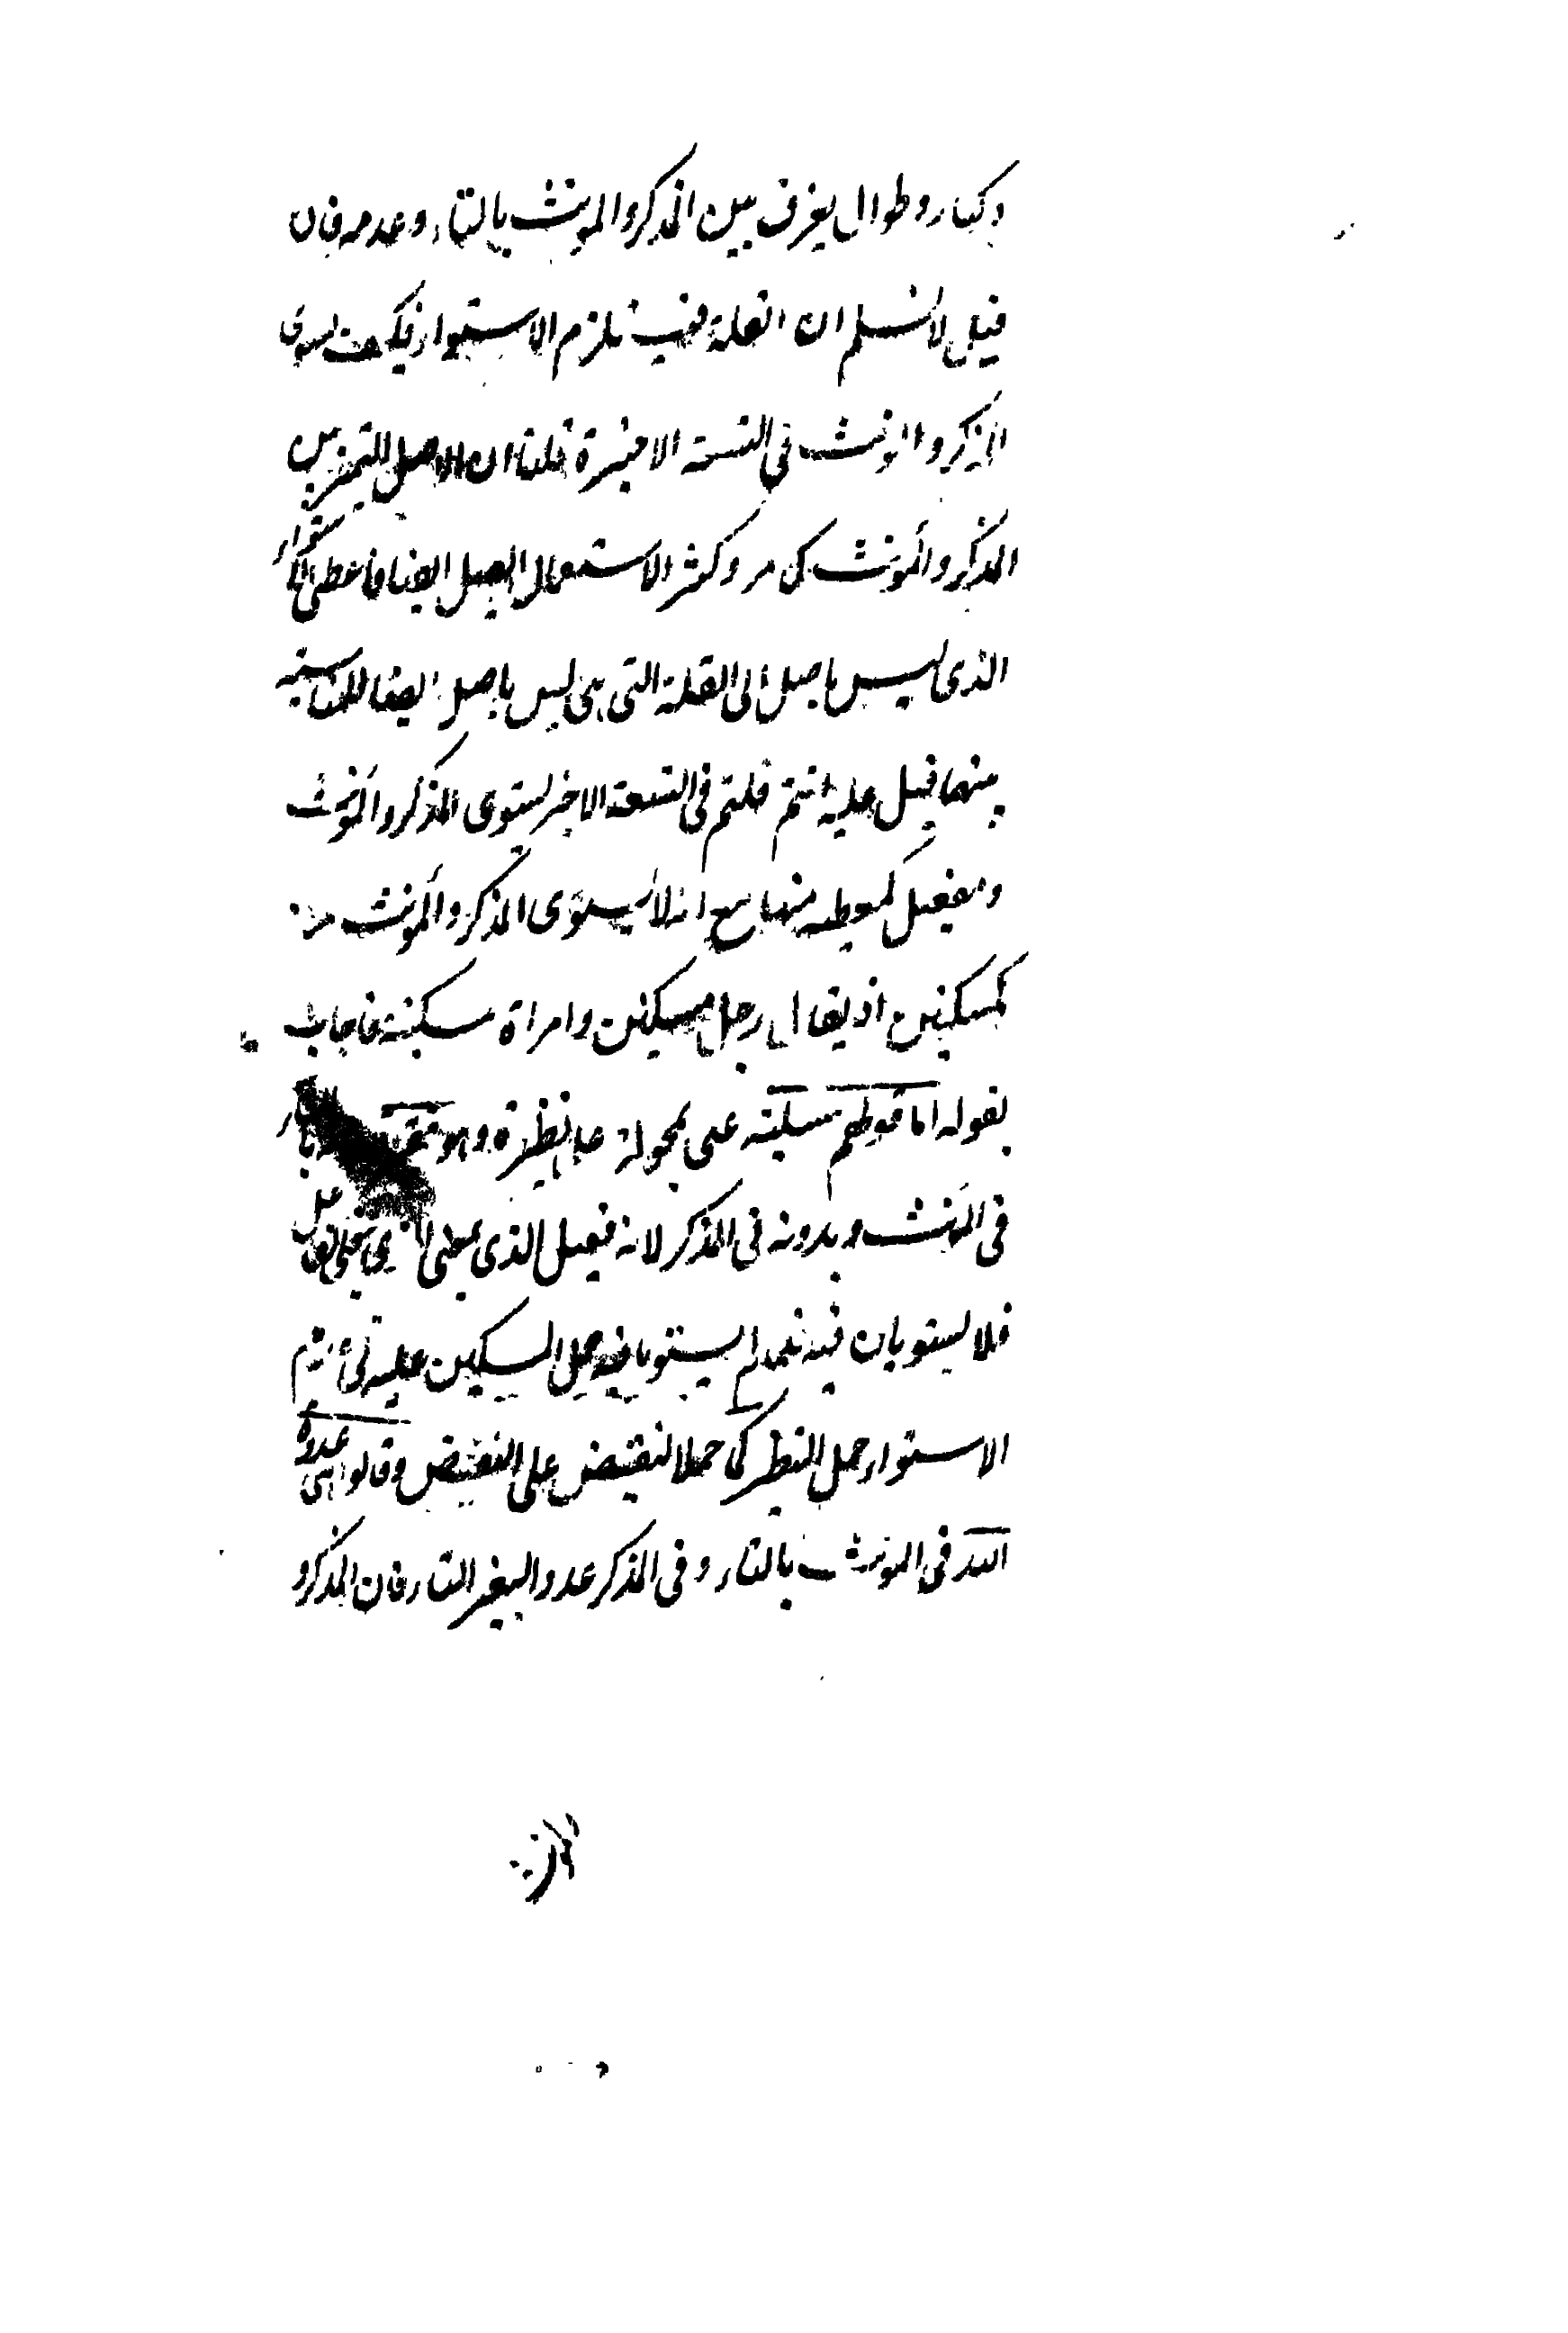 و كبار وطوال يفرق بين المذكر والمونث بالتاء وعدمه فان
قيل لا نسلم ان القلة فيه تلزم الاستواء فكيف يستوى
المذكر والمونث فى التسعة الاخيرة قلنا ان الاصل التميز بين
المذكر والمونث كما مر وكثر الاستعمال اصل ايضا فاعطى الاستواء
الذى ليس باصل الى القلة التى هى ليس باصل ايضا للمناسبة
بينهما قيل عليه انتم قلتم فى التسعة الاخير يستوى المذكر والمونث
ومفعيل كمعطير منها مع انه لا يستوى المذكر والمونث
كمسكين اذ يقال رجل مسكين وامراة مسكينة فاجاب
بقوله اما قولهم مسكينة على محمولة على نظيرة وهو فقيرة
فى المونث وبدونه فى المذكر لانه فعيل الذى بمعنى الفاعل
فلا يستويان فيه فلما لم يستويا فيه حمل المسكين عليه فى عدم
الاستواء حمل النظير كما حملا لنقيض على النقيض وقالوا هى عدوة
الله فى المونث بالتاء وفى المذكر عدو البغير التاء فان المذكر و